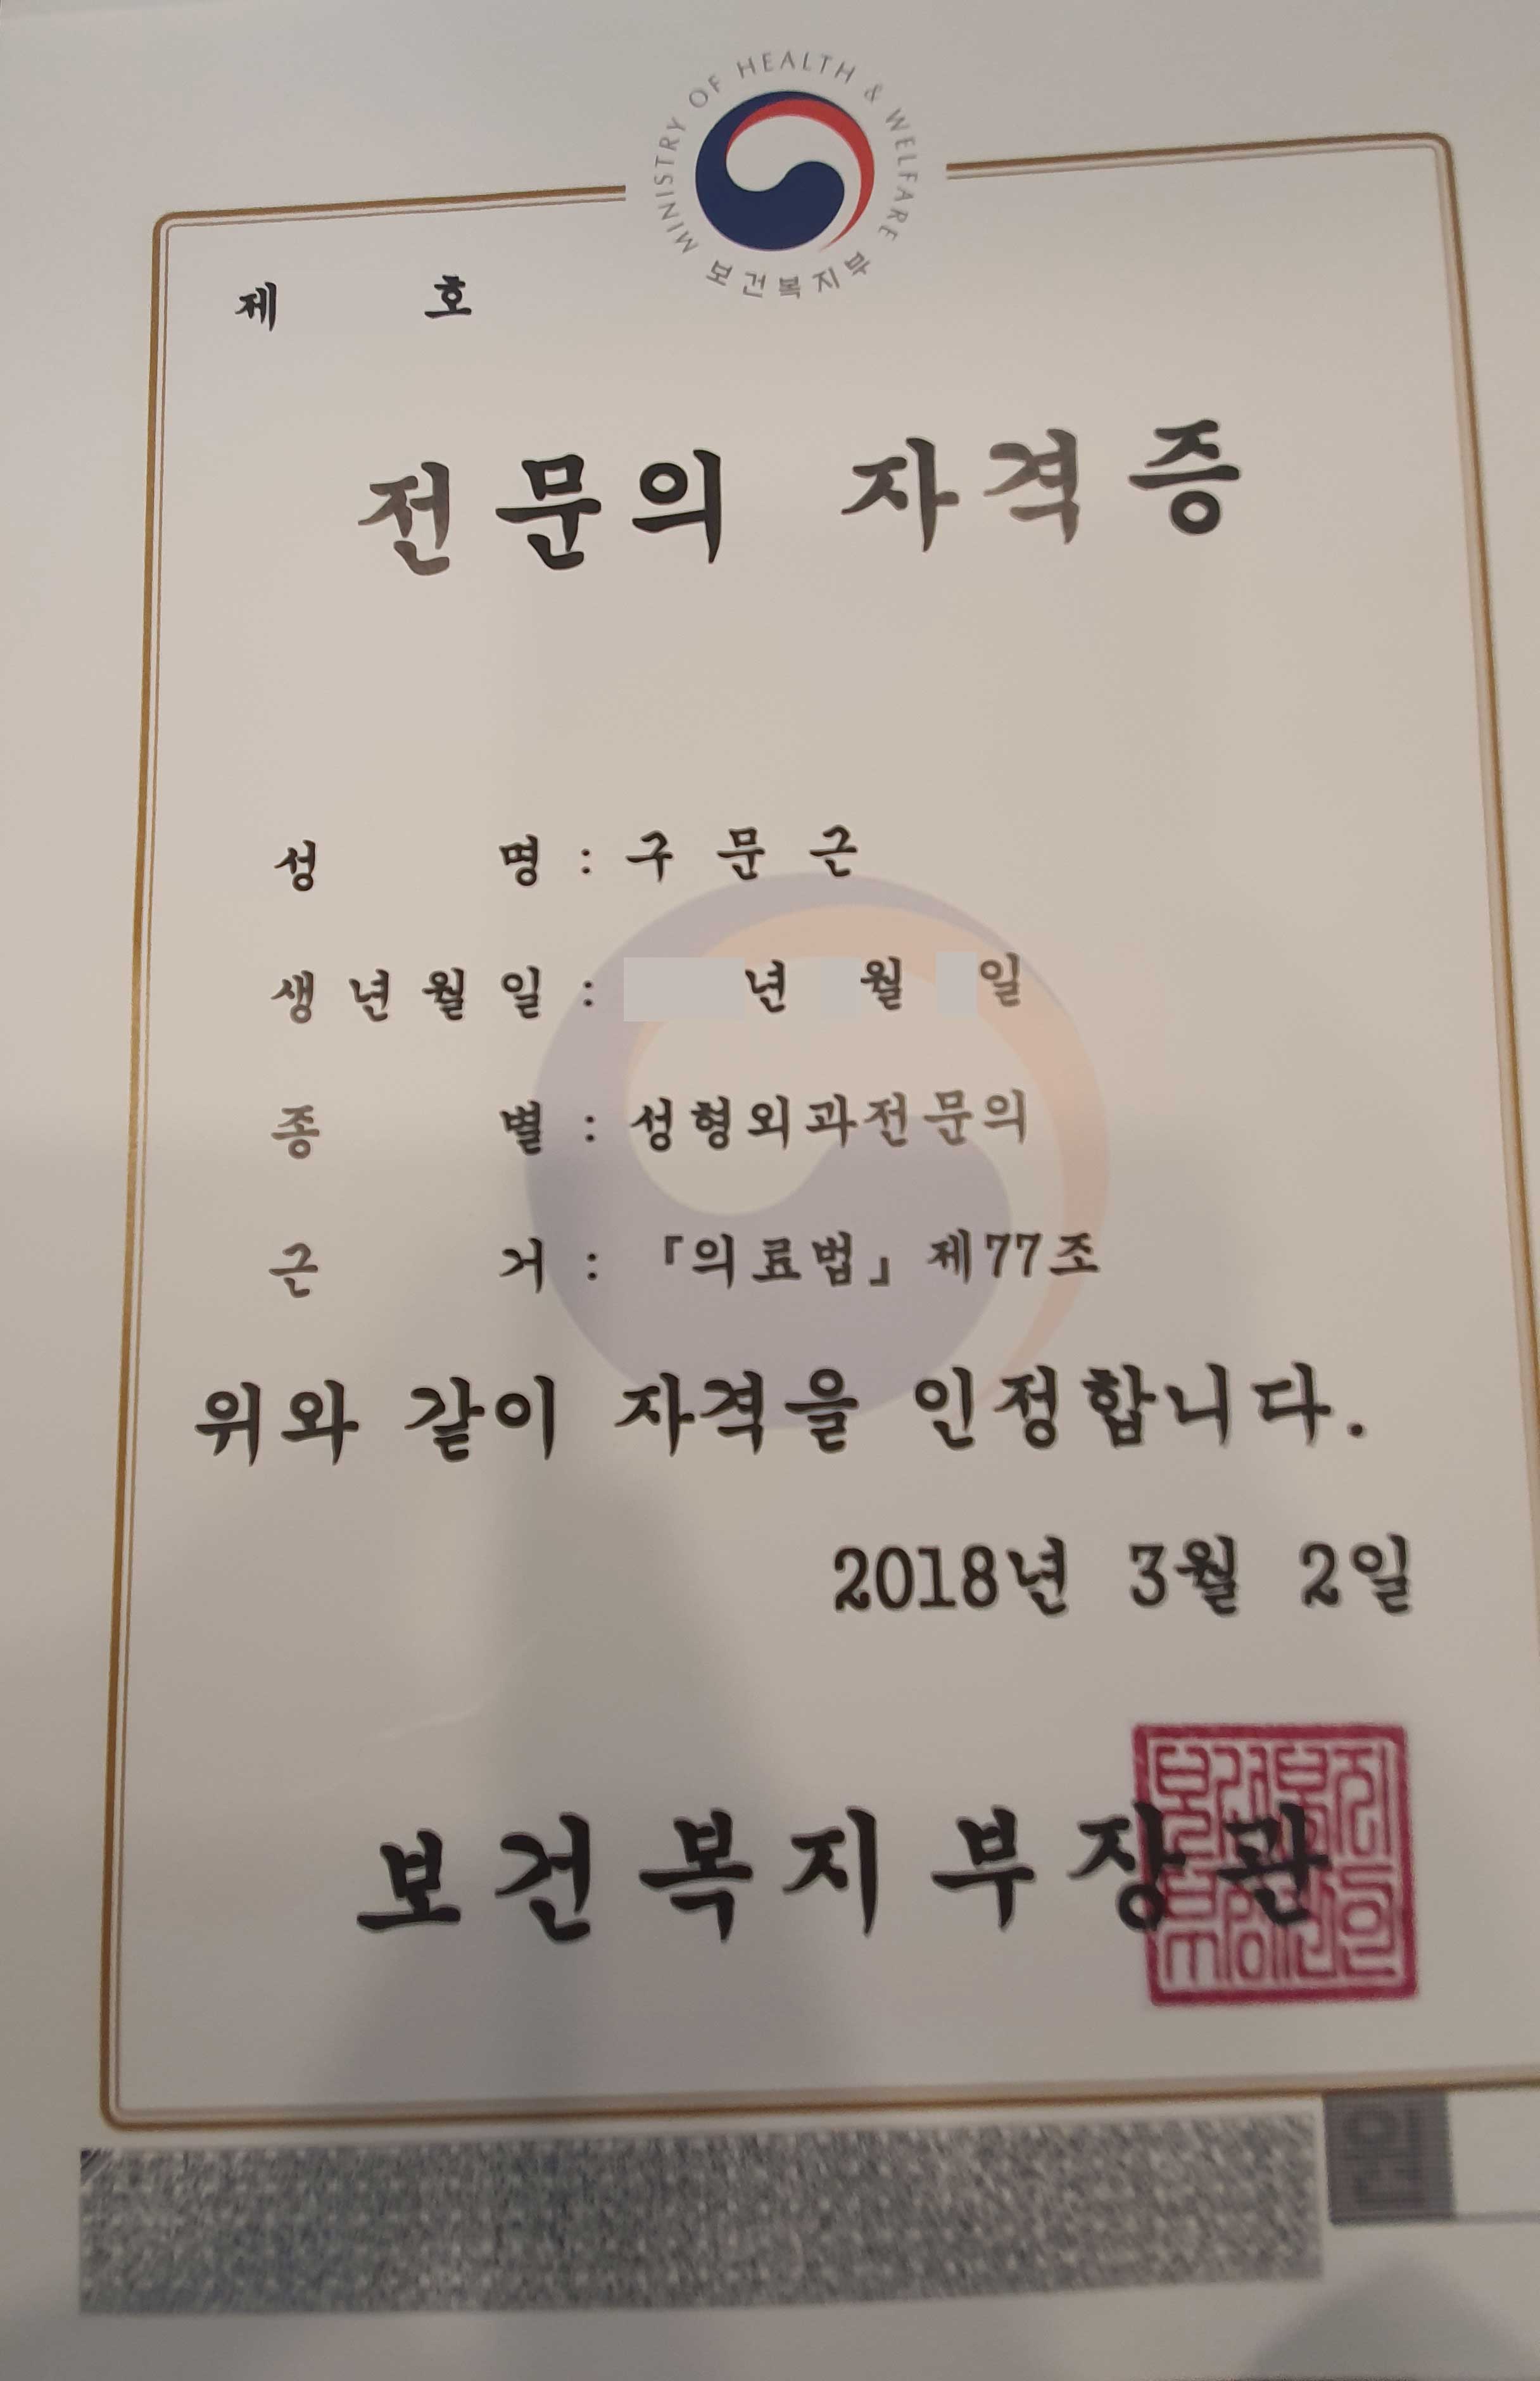 MINISTRY OF HEALTH & WELFARE
보건복지부
제 호
전문의 자격증
성 명 : 구 문 근
생년월일 : 년 월 일
종 별 : 성형외과전문의
근 거 : 『의료법』 제77조
위와 같이 자격을 인정합니다.
2018년 3월 2일
보건복지부장관